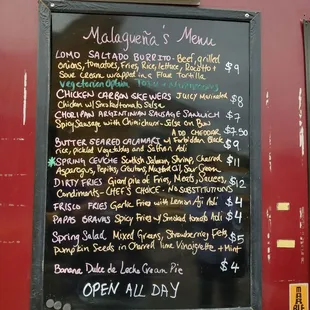 Malagueña's Menu
LOMO SALTADO BURRITO - Beef, grilled
onions, tomatoes, Fries, Rice, lettuce, Rocotto +
Sour Cream wrapped in a Flour Tortilla $9
Vegetarian Option
CHICKEN CARBON SKEWERS Juicy Marinated
Chicken w/ Smoked tomato Salsa $8
CHORIPAN ARGINTINIAN SAUSAGE SANDWICH $7
Spicy Sausage with Chimichurri Salsa on Bun
ADD CHEDDAR $7.50
BUTTER SEARED CALAMARI w/ Forbidden Black $9
rice, pickled Vegetables and Saffron Aoli
*SPRING CEVICHE Scottish Salmon, Shrimp, Charred $11
Asparagus, Pepitas, Croutons, Mustard Oil, Sour Cream
DIRTY FRIES Giant pile of Fries, Meats, Sauces, $12
Condiments - CHEF'S CHOICE - NO SUBSTITUTIONS
FRISCO FRIES Garlic Fries with Lemon Aoli $4
PAPAS BRAVAS Spicy Fries w/ Smoked tomato Aoli $4
Spring Salad Mixed Greens, Strawberries, Feta, $5
Pumpkin Seeds in Charred lime Vinaigrette + Mint
Banana Dulce de Leche Cream Pie $4
OPEN ALL DAY